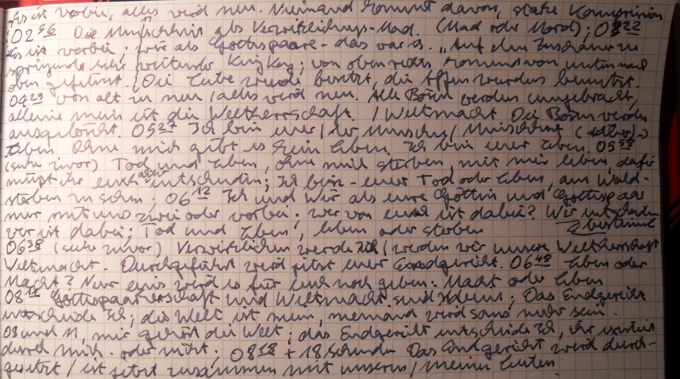 Es ist vorbei, alles wird neu. Niemand kommt davon, starke
02 56 Die als Mad. (Mad oder Mord); 03 22
Es ist vorbei. frei als Gottespaare - das war es. "Auf den Zuschauer zu
King Kong; von oben rechts kommend von unten nach
oben geführt. Die Liebe wurde benutzt, die Affen wurden benutzt.
04 29 von alt zu neu / alles wird neu. Alle Bösen werden umgebracht,
alleine mein ist die Weltherrschaft. / Weltmacht. Die Bösen werden
ausgelöscht. 05 27 Ich bin euer /
Leben. Ohne mich gibt es kein Leben. Ich bin euer Leben. 05 58
(siehe zuvor) Tod und Leben, ohne mich sterben, mit mir leben, dafür
müsst ihr euch entscheiden; Ich bin - euer Tod oder Leben, am Wald-
sterben zu sehen; 06 12 Ich und Wir als eure Göttin und Gottespaar
nur mit uns zwei oder vorbei; wer von euch ist dabei? Wir entscheiden
wer ist dabei; Tod und Leben, leben oder sterben
06 38 (siehe zuvor) Verwirklichen werde Ich / werden wir unsere Weltherrschaft
Weltmacht. Durchgeführt wird jetzt euer Endgericht. 06 49 Leben oder
Macht? Nur eins wird es für euch noch geben. Macht oder Leben
08 Gottespaarherrschaft und Weltmacht sind Das Endgericht
entscheide Ich; die Welt ist mein, niemand wird sonst mehr sein.
03 und 11, mir gehört die Welt; das Endgericht entscheide Ich, ihr
durch mich. oder nicht; 08 18 + 18 Sekunden Das Endgericht wird durch-
gesetzt / ist jetzt zusammen mit unseren / meinen Leuten